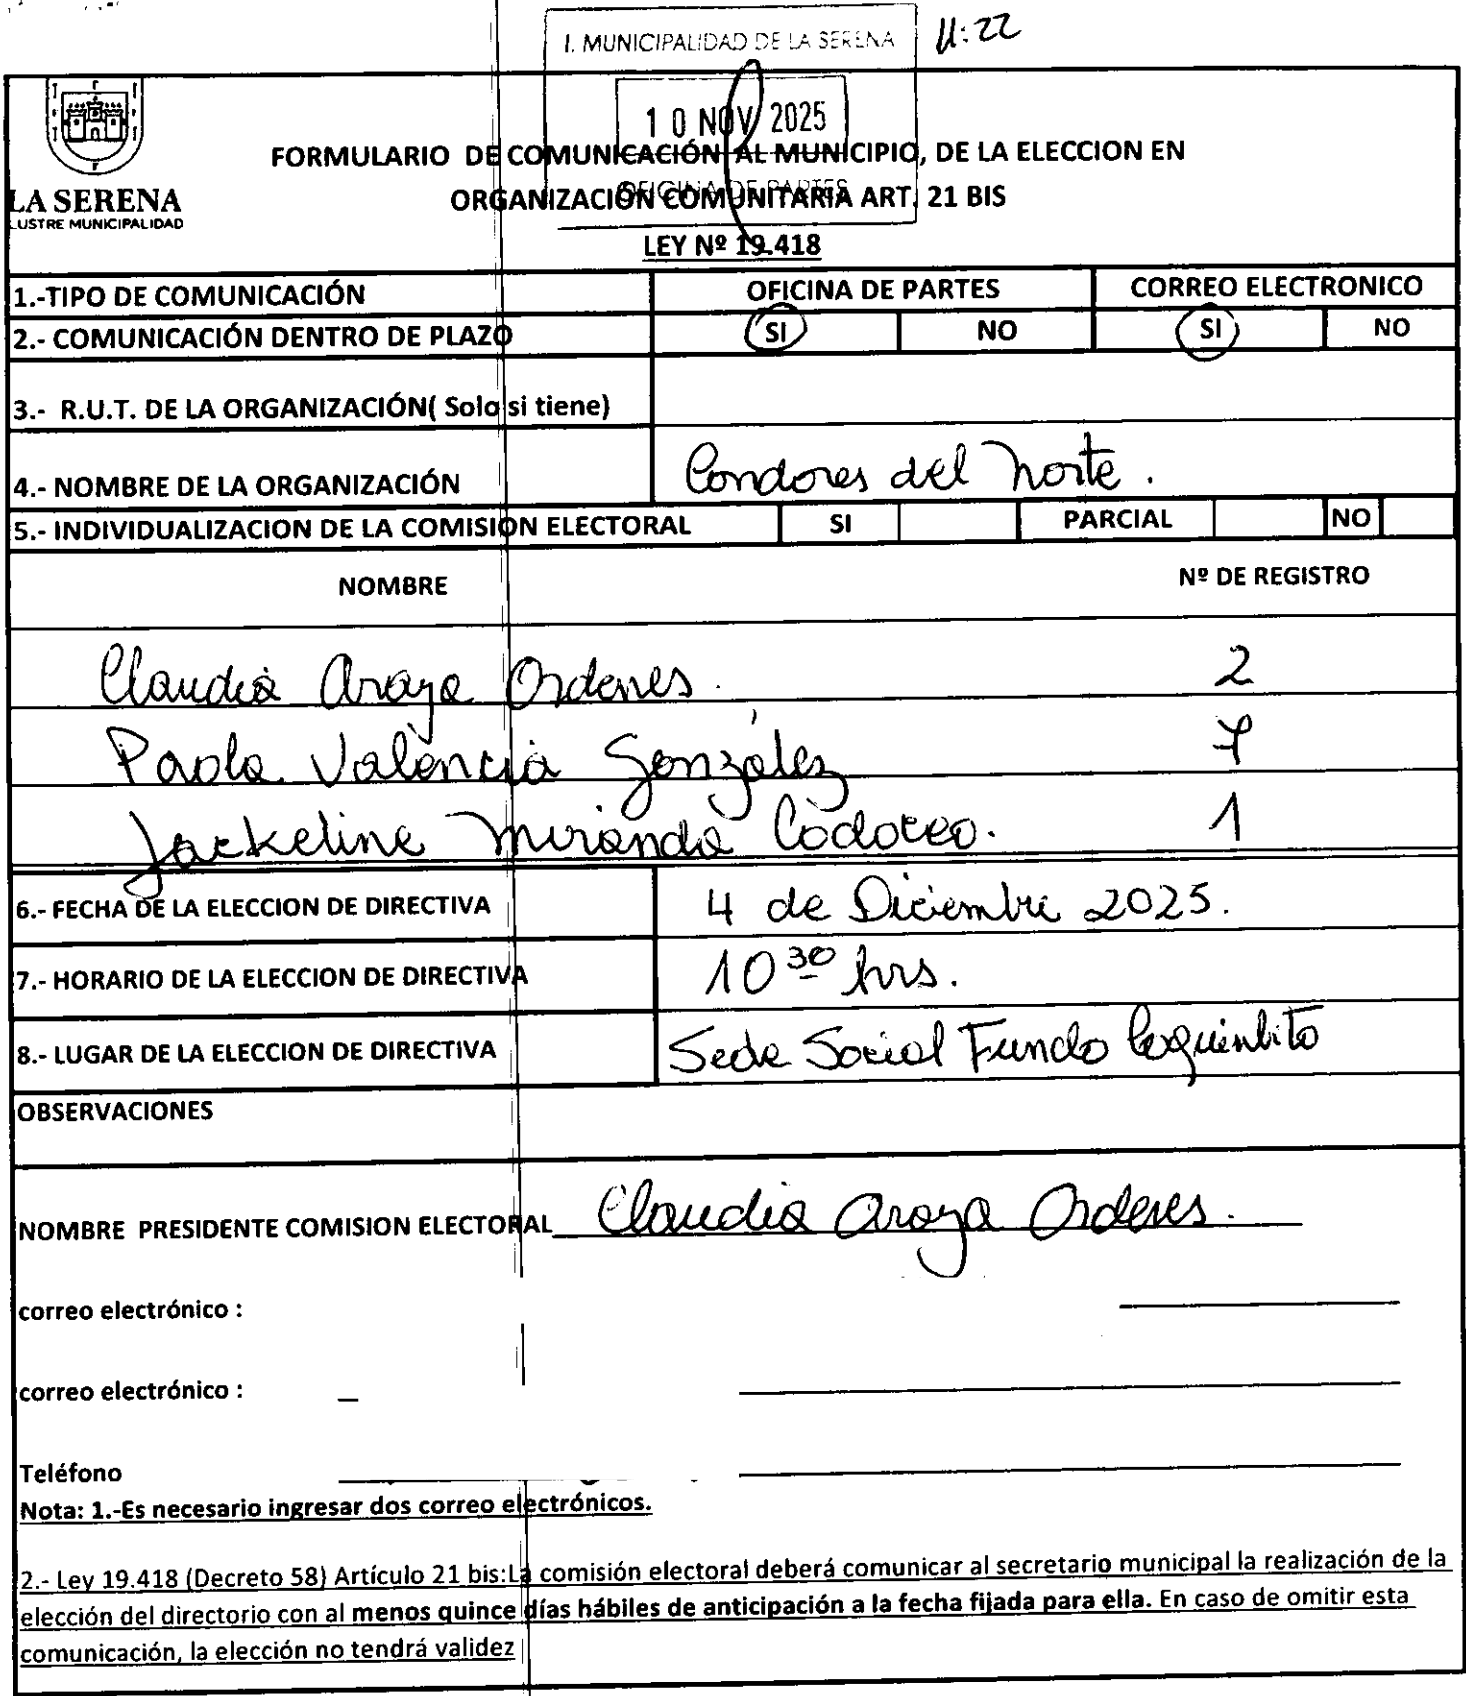 I. MUNICIPALIDAD DE LA SERENA
11:22
10 NOV 2025
OFICINA DE PARTES
LA SERENA
LUSTRE MUNICIPALIDAD
FORMULARIO DE COMUNICACIÓN AL MUNICIPIO, DE LA ELECCION EN
ORGANIZACIÓN COMUNITARIA ART. 21 BIS
LEY Nº 19.418
1.-TIPO DE COMUNICACIÓN OFICINA DE PARTES CORREO ELECTRONICO
2.- COMUNICACIÓN DENTRO DE PLAZO SI NO SI NO
3.- R.U.T. DE LA ORGANIZACIÓN( Solo si tiene)
4.- NOMBRE DE LA ORGANIZACIÓN Condores del norte.
5.- INDIVIDUALIZACION DE LA COMISIÓN ELECTORAL SI PARCIAL NO
NOMBRE Nº DE REGISTRO
Claudia Araya Ordenes. 2
Paola Valencia González 7
Jackeline Miranda Codoceo. 1
6.- FECHA DE LA ELECCION DE DIRECTIVA 4 de Diciembre 2025.
7.- HORARIO DE LA ELECCION DE DIRECTIVA 10 30 hrs.
8.- LUGAR DE LA ELECCION DE DIRECTIVA Sede Social Fundo Coquimbito
OBSERVACIONES
NOMBRE PRESIDENTE COMISION ELECTORAL Claudia Araya Ordenes.
correo electrónico :
correo electrónico :
Teléfono
Nota: 1.-Es necesario ingresar dos correo electrónicos.
2.- Ley 19.418 (Decreto 58) Artículo 21 bis:La comisión electoral deberá comunicar al secretario municipal la realización de la
elección del directorio con al menos quince días hábiles de anticipación a la fecha fijada para ella. En caso de omitir esta
comunicación, la elección no tendrá validez